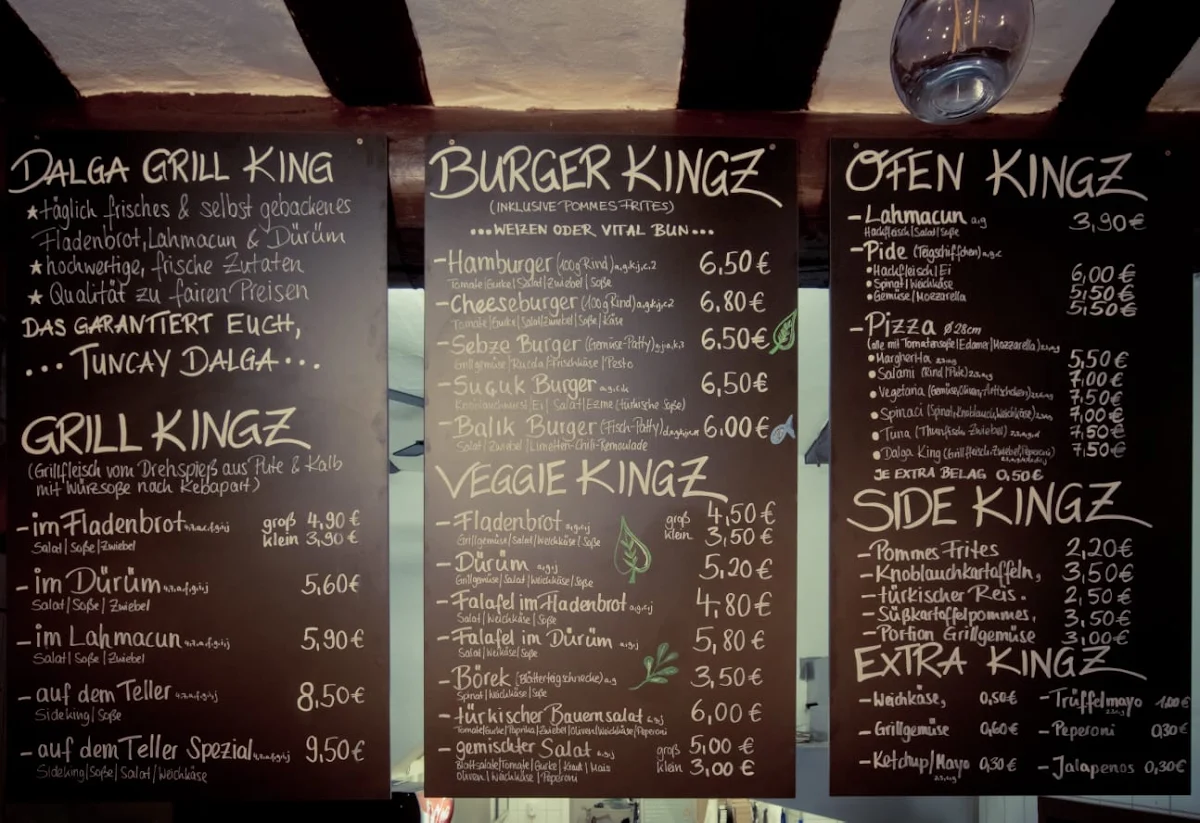 DALGA GRILL KING
★ täglich frisches & selbst gebackenes
Fladenbrot, Lahmacun & Dürüm
★ hochwertige, frische Zutaten
★ Qualität zu fairen Preisen
DAS GARANTIERT EUCH,
... TUNCAY DALGA ...
GRILL KINGZ
(Grillfleisch vom Drehspieß aus Pute & Kalb
mit Würzsoße nach Kebapart)
- im Fladenbrot groß 4,90 €
klein 3,90 €
Salat | Soße | Zwiebel
- im Dürüm 5,60€
Salat | Soße | Zwiebel
- im Lahmacun 5,90 €
Salat | Soße | Zwiebel
- auf dem Teller 8,50€
Sideking | Soße
- auf dem Teller Spezial 9,50€
Sideking | Soße | Salat | Weichkäse
BURGER KINGZ
(INKLUSIVE POMMES FRITES)
...WEIZEN ODER VITAL BUN...
- Hamburger (100g Rind) a,g,k,j,c,2 6,50 €
Tomate | Gurke | Salat | Zwiebel | Soße
- Cheeseburger (100g Rind) a,g,k,j,c,2 6,80 €
Tomate | Gurke | Salat | Zwiebel | Soße | Käse
- Sebze Burger (Gemüse-Patty) 6,50€
Grillgemüse | Rucola | Frischkäse | Pesto
- Suçuk Burger 6,50€
Knoblauchwurst | Ei | Salat | Ezme (türkische Soße)
- Balik Burger (Fisch-Patty) 6,00€
Salat | Zwiebel | Limetten-Chili-Remoulade
VEGGIE KINGZ
- Fladenbrot groß 4,50 €
klein 3,50 €
Grillgemüse | Salat | Weichkäse | Soße
- Dürüm 5,20€
Grillgemüse | Salat | Weichkäse | Soße
- Falafel im Fladenbrot 4,80 €
Salat | Weichkäse | Soße
- Falafel im Dürüm 5,80 €
Salat | Weichkäse | Soße
- Börek (Blätterteigschnecke) a,g 3,50€
Spinat | Weichkäse | Soße
- türkischer Bauernsalat 6,00 €
Tomate | Gurke | Paprika | Zwiebel | Oliven | Weichkäse | Peperoni
- gemischter Salat groß 5,00 €
klein 3,00 €
Blattsalate | Tomate | Gurke | Kraut | Mais
Oliven | Weichkäse | Peperoni
OFEN KINGZ
- Lahmacun a,g 3,90€
Hackfleisch | Salat | Soße
- Pide (Teigschiffchen) a,g,c
• Hackfleisch | Ei 6,00 €
• Spinat | Weichkäse 5,50€
• Gemüse | Mozzarella 5,50€
- Pizza Ø 28cm
(alle mit Tomatensoße | Edamer | Mozzarella)
• Margherita 5,50€
• Salami (Rind | Pute) 7,00€
• Vegetaria (Gemüse, Oliven, Artischocken) 7,50€
• Spinaci (Spinat, Knoblauch, Weichkäse) 7,00€
• Tuna (Thunfisch, Zwiebel) 7,50€
• Dalga King (Grillfleisch, Zwiebel, Peperoni) 7,50€
JE EXTRA BELAG 0,50€
SIDE KINGZ
- Pommes Frites 2,20€
- Knoblauchkartoffeln, 3,50€
- türkischer Reis. 2,50 €
- Süßkartoffelpommes, 3,50€
- Portion Grillgemüse 3,00€
EXTRA KINGZ
- Weichkäse, 0,50€ - Trüffelmayo 1,00€
- Grillgemüse 0,60€ - Peperoni 0,30€
- Ketchup/Mayo 0,30€ - Jalapenos 0,30€